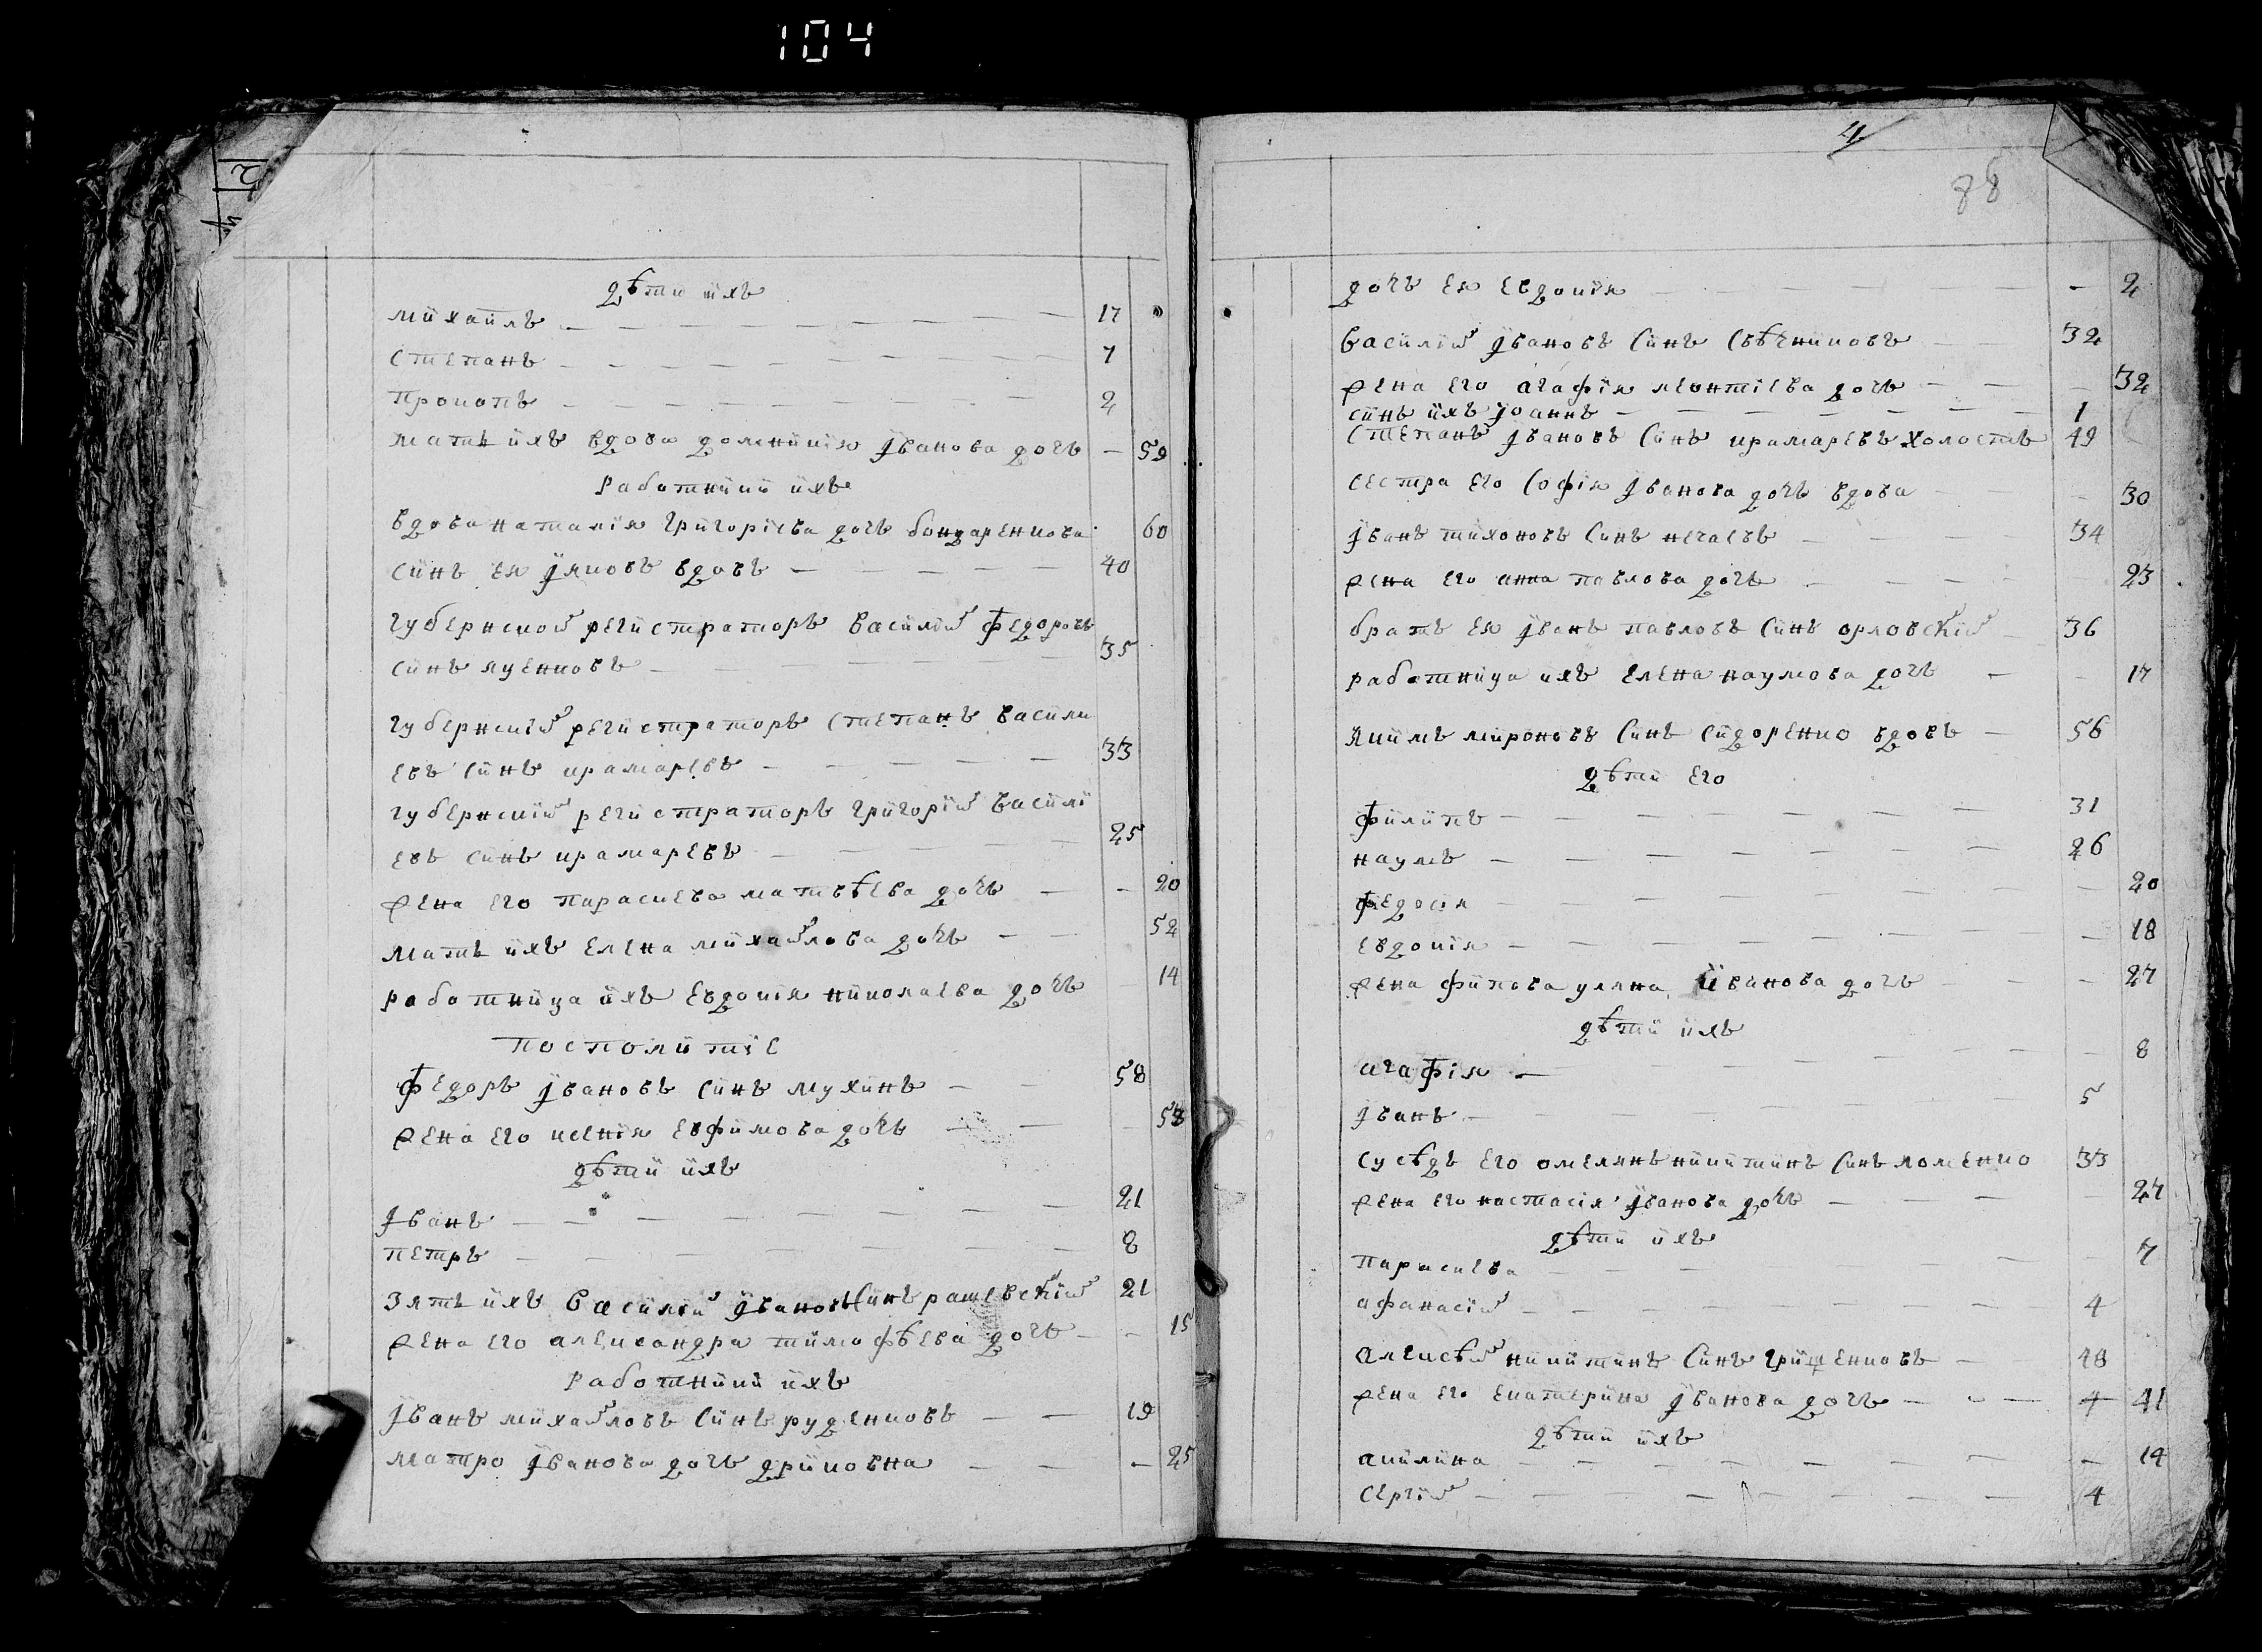 104
дѣти ихъ
михаилъ 17
степанъ 7
прокопъ 2
мать ихъ вдова домникия Ївановa дочъ 59
Работники ихъ
вдова наталїя григорїева дочъ бондаренкова 60
синъ ея Ѵяковъ вдовъ 40
губернской регистраторъ василїй Федоровъ
синъ луценковъ 35
губернскїй регистраторъ степанъ васили
евъ синъ крамаревъ 33
губернскїй регистраторъ григорїй василї
евъ синъ крамаревъ 25
жена его параскева матвѣева дочъ 20
мать ихъ елена михайлова дочъ 52
работница ихъ Евдокїя николаева дочъ 14
посполитїе
Федоръ Ївановъ синъ мухинъ 58
жена его ксенїя евфимова дочъ
дѣти ихъ
Їванъ 21
петръ 8
Зять ихъ василїй Ївановъ синъ рашевскїй 21
жена его александра тимофѣева дочъ 15
Работники ихъ
Їванъ михайловъ синъ руденковъ 19
матро Їванова дочъ дриковна 25
4
88
дочъ ея евдокїя 2
василїй Ївановъ синъ Свѣчниковъ 32
жена его агафїя леонтїева дочъ 32
синъ ихъ Їоаннъ 1
степанъ Ївановъ синъ крамаревъ холостъ 49
сестра его софїя Їванова дочъ вдова 30
Їванъ тихоновъ синъ нечаевъ 34
жена его анна павлова дочъ 23
братъ ея Їванъ павловъ синъ орловскїй 36
работница ихъ елена наумова дочъ 17
якимъ мироновъ синъ сидоренко вдовъ 56
дѣти его
Филипъ 31
наумъ 26
Федосїя 20
евдокїя 18
жена филпова уляна Їванова дочъ 27
дѣти ихъ
агафїя 8
Їванъ 5
сусѣдъ его омелянъ никитинъ синъ ломенко 33
жена его настасїя Їванова дочъ 27
дѣти ихъ
параскева 7
афанасїй 4
алексѣй никитинъ синъ грищенковъ 48
жена его екатерина Їванова дочъ 41
дѣти ихъ
акилина 14
сергїй 4